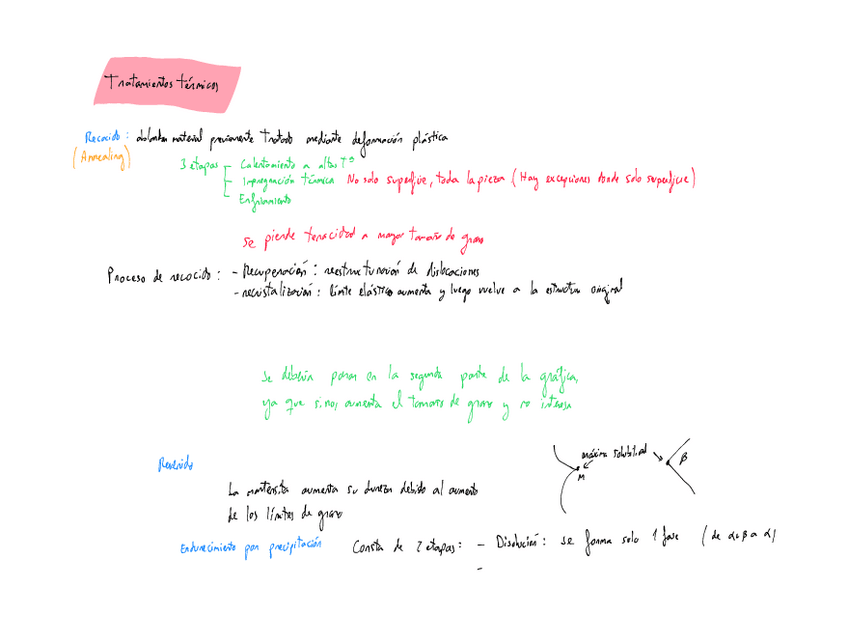 Tratamientos térmicos
Recocido: ablandar material previamente tratado mediante deformación plástica
(Annealing)
3 etapas - Calentamiento a altas Tª
- Impregnación térmica No solo superficie, toda la pieza (Hay excepciones donde solo superficie)
- Enfriamiento
Se pierde tenacidad a mayor tamaño de grano
Proceso de recocido: - Recuperación: reestructuración de dislocaciones
- recristalización: límite elástico aumenta y luego vuelve a la estructura original
Se debería parar en la segunda parte de la gráfica,
ya que sino, aumenta el tamaño de grano y no interesa
máxima solubilidad
M
β
Revenido
La martensita aumenta su dureza debido al aumento
de los límites de grano
Endurecimiento por precipitación Consta de 2 etapas: - Disolución: se forma solo 1 fase (de α+β a α)
-